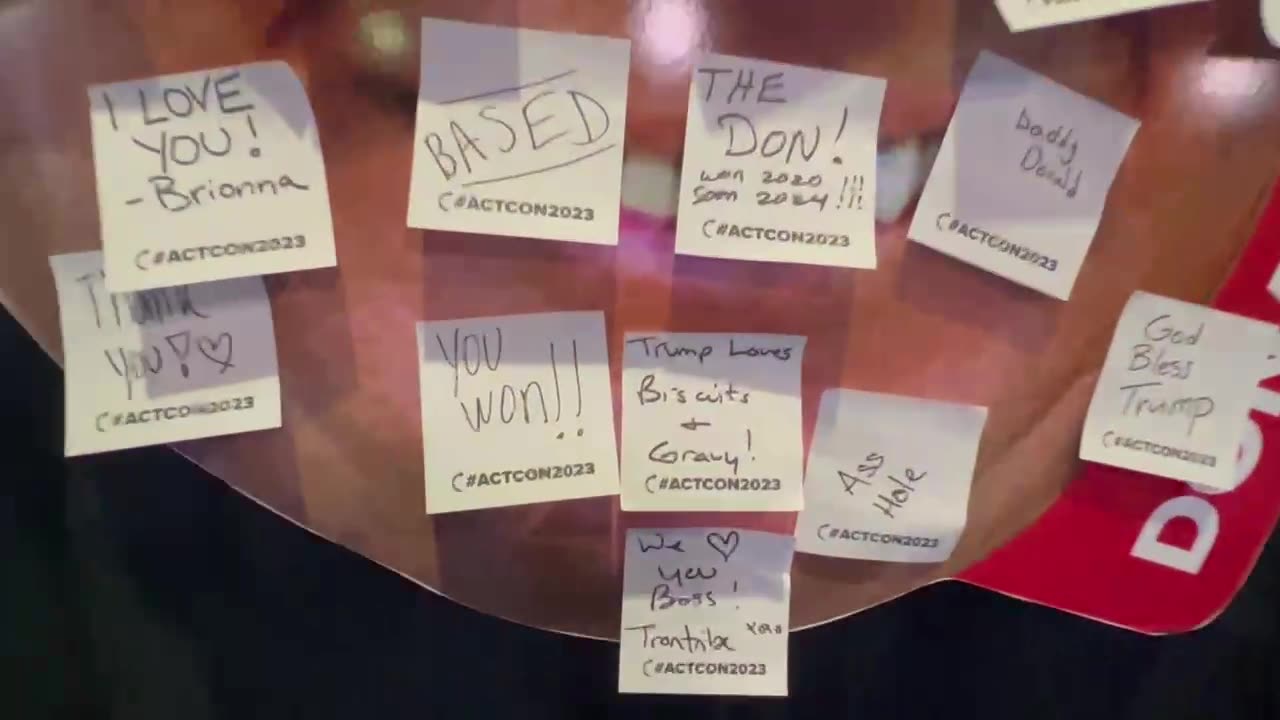 I LOVE
YOU!
- Brionna
(#ACTCON2023
BASED
(#ACTCON2023
THE
DON!
won 2020 !!!
Soon 2024 !!!
(#ACTCON2023
Daddy
Donald
(#ACTCON2023
Thank
you! ♡
(#ACTCON2023
YOU
WON!!
(#ACTCON2023
Trump Loves
Biscuits
+
Gravy!
(#ACTCON2023
Ass
Hole
(#ACTCON2023
God
Bless
Trump
(#ACTCON2023
We ♡
you
Boss!
xoxo
(#ACTCON2023